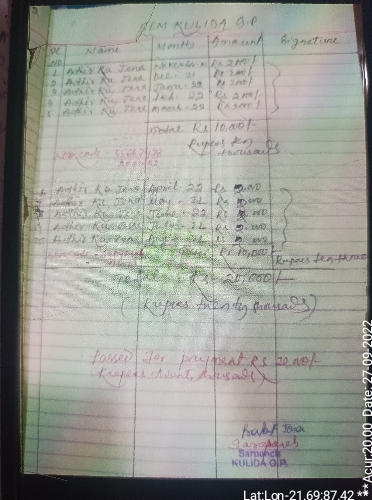 GEM KULIDA G.P
SL NO Name Months Amount Signature
1 Adhir Ku Jena November-21 Rs 2,000/-
2 Adhir Ku Jena Dec-21 Rs 2,000/-
3 Adhir Ku Jena Janu-22 Rs 2,000/-
4 Adhir Ku Jena Feb-22 Rs 2,000/-
5 Adhir Ku Jena March-22 Rs 2,000/-
Total Rs 10,000/-
Rupees ten
thousands
Adhir Ku Jena April-22 Rs 2,000
Adhir Ku Jena May-22 Rs 2,000
Adhir Ku Jena June-22 Rs 2,000
Adhir Ku Jena July-22 Rs 2,000
Adhir Ku Jena Rs 2,000
Rs 10,000/- Rupees ten thousands
Total - Rs - 20,000/-
(Rupees twenty thousands)
Passed for payment Rs 20,000/-
Rupees twenty thousands)
Jena
Sarpanch
Sarpanch
KULIDA G.P.
Lat:Lon-21.69:87.42 **Acur:20.00 Date: 27-09-2022